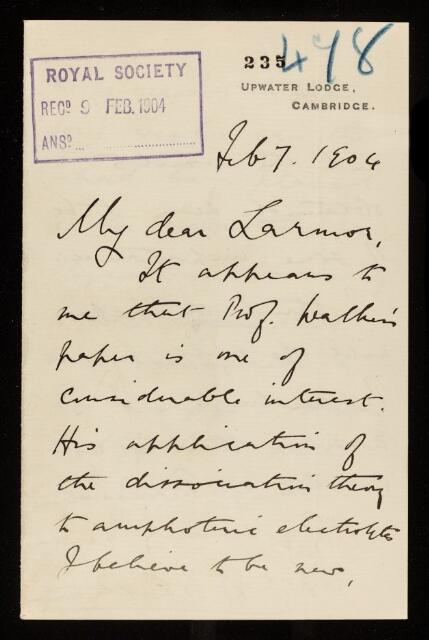 ROYAL SOCIETY
RECD 9 FEB. 1904
ANSD
235
478
UPWATER LODGE,
CAMBRIDGE.
Feb 7. 1904
My dear Larmor,
It appears to
me that Prof. Walker's
paper is one of
considerable interest.
His application of
the dissociation theory
to amphoteric electrolytes
I believe to be new,